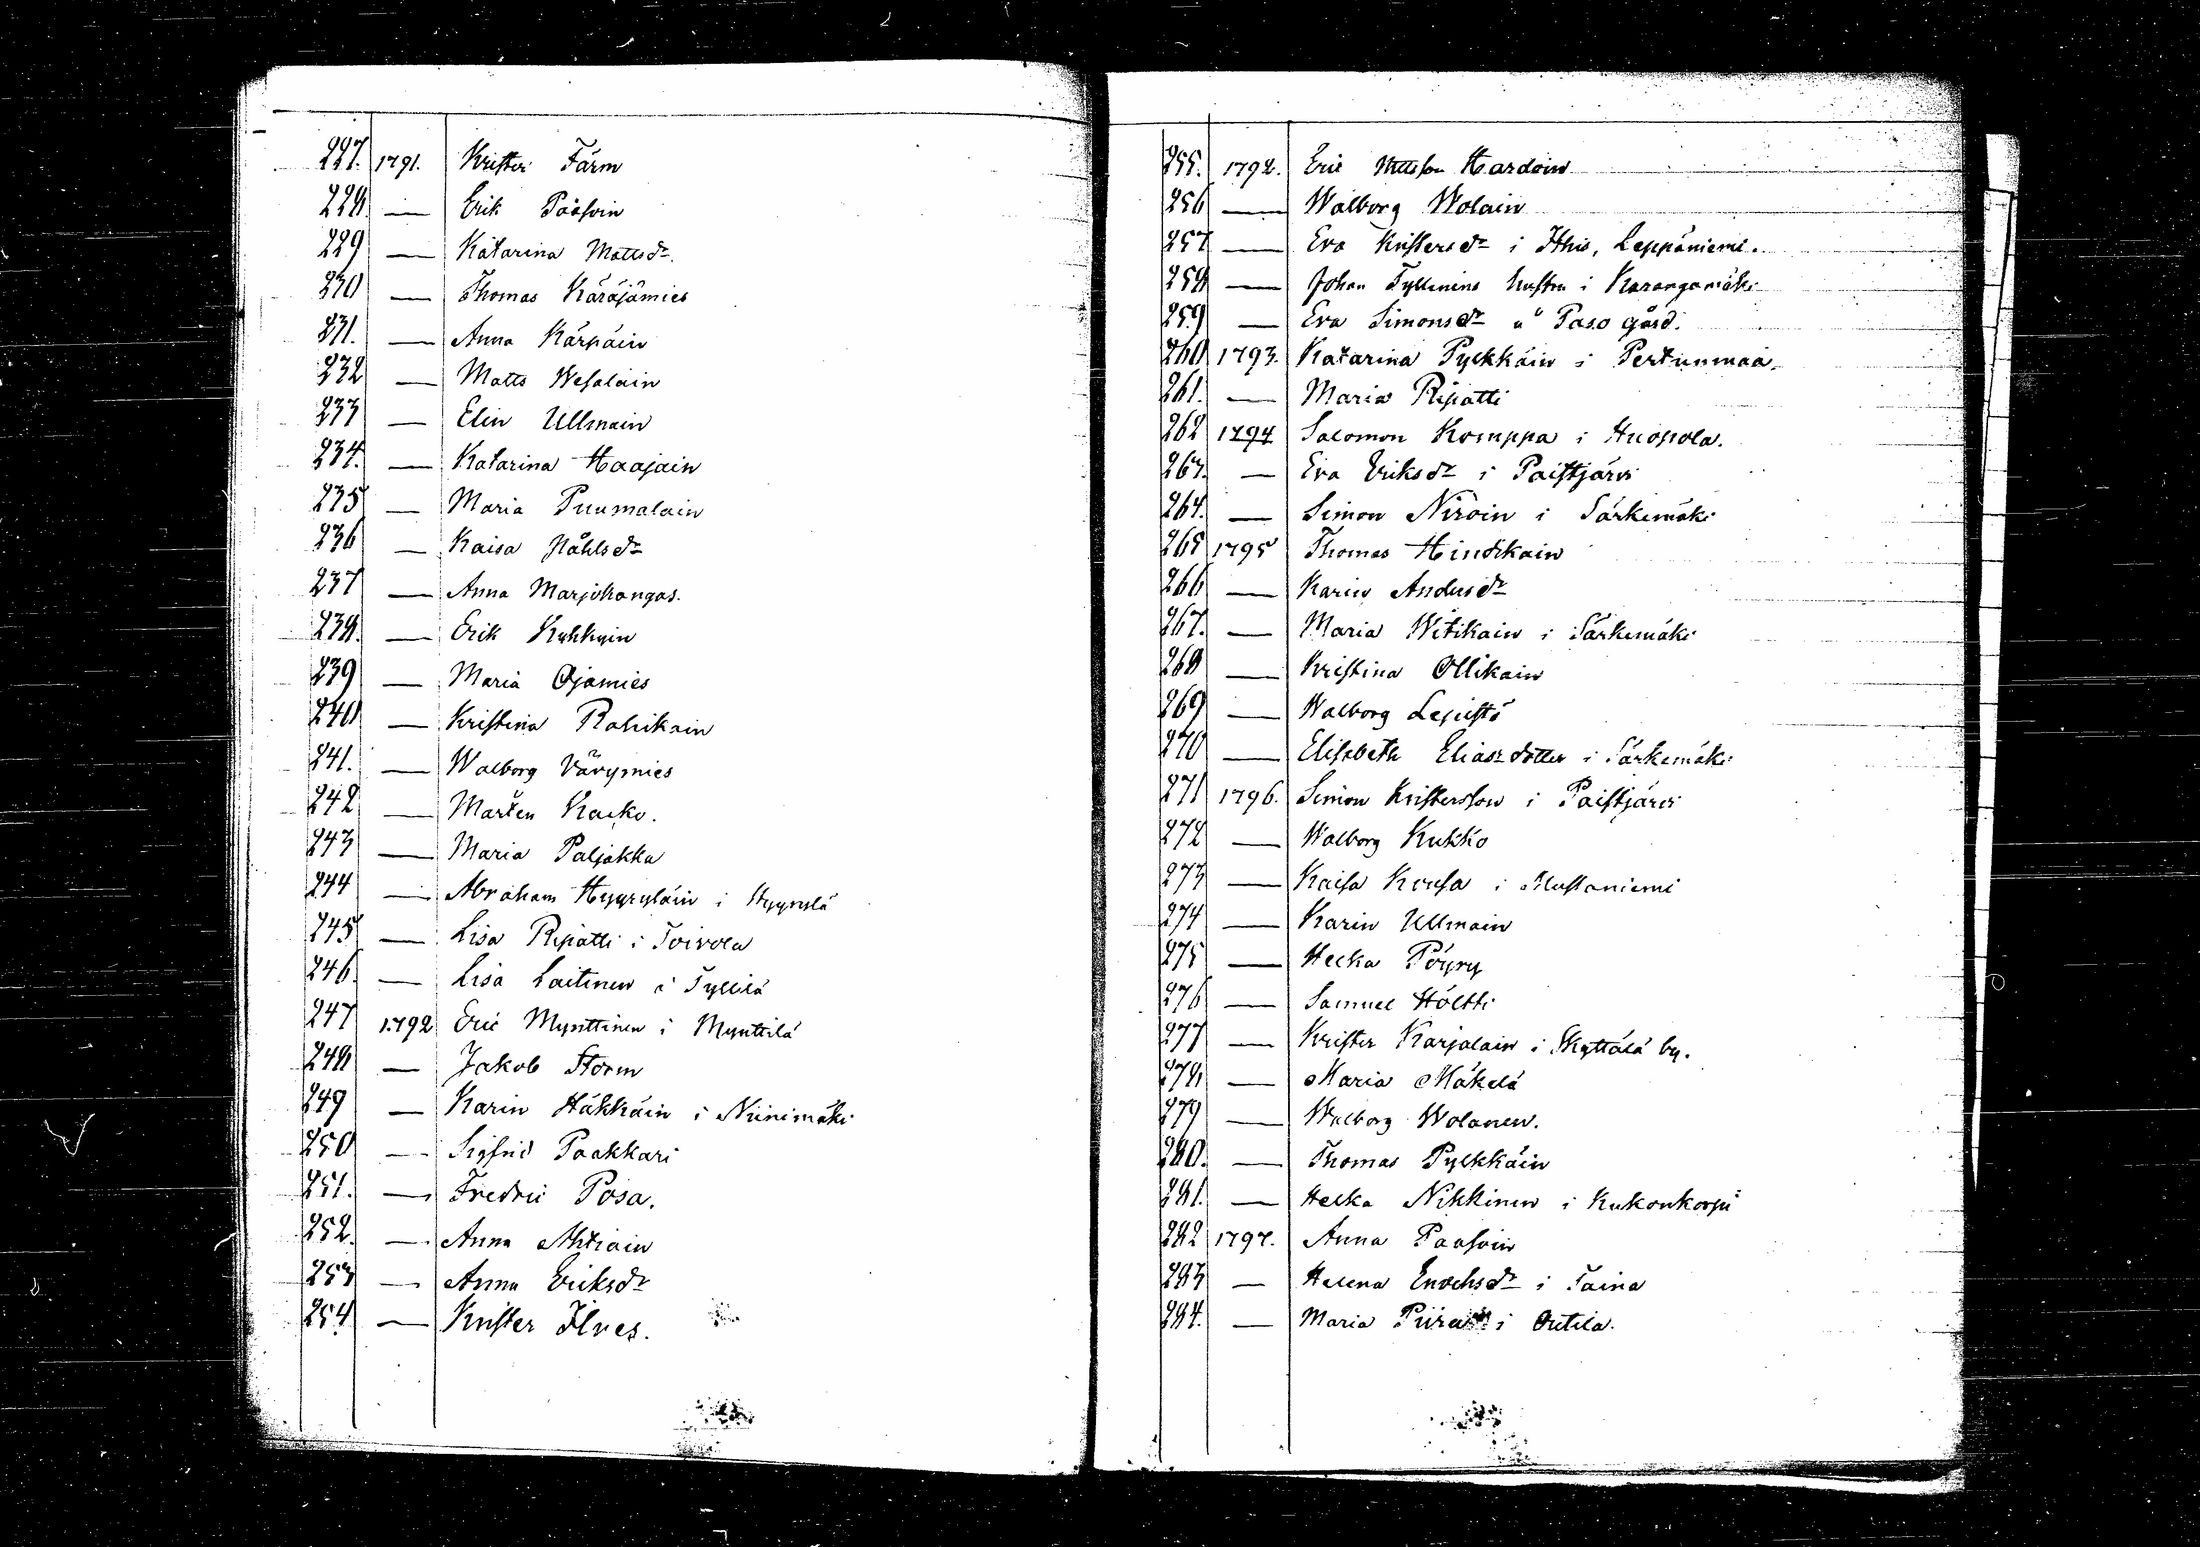 227. 1791. Krister Färm
228. — Erik Paasoin
229 — Katarina Mattsdr.
230 — Thomas Käräjämies
231. — Anna Kärpäin
232 — Matts Wesalain
233 — Elin Ullmain
234. — Katarina Haajain
235 — Maria Puumalain
236 — Kaisa Påhlsdr
237 — Anna Marjokangas.
238. — Erik Kykkyin
239 — Maria Ojamies
240 — Kristina Rahikain
241. — Walborg Värymies
242 — Marten Kacko.
243 — Maria Paljakka
244 — Abraham Hyyryläin i Hyyrylä
245 — Lisa Ripatti i Toivola
246. — Lisa Laitinen i Tyllilä
247 1792 Eric Mynttinen i Mynttilä
248 — Jakob Storm
249 — Karin Häkkäin i Niinimäki
250 — Sigfrid Paakkari
251. — Fredric Posa.
252. — Anna Ahtiain
253 — Anna Eriksdr
254. — Krister Ilves.
255. 1792. Eric Mattsson Kardoin
256 — Walborg Wolain
257 — Eva Kristersdr i Ihis, Leppäniemi.
258 — Johan Tyllinens hustru i Karangamäki
259 — Eva Simonsdr å Paso gård.
260 1793. Katarina Pylkkäin i Pertunmaa.
261. — Maria Ripatti
262 1794 Salomon Komppa i Huopola.
263. — Eva Eriksdr i Paistjärvi
264. — Simon Niroin i Särkemäki
265 1795 Thomas Hindikain
266 — Karin Andersdr
267. — Maria Witikain i Särkemäki
268 — Kristina Ollikain
269 — Walborg Lepistö
270 — Elisabeth Eliasdotter i Särkemäki
271 1796. Simon Kristersson i Paistjärvi
272 — Walborg Kukko
273 — Kaisa Kousa i Mustaniemi
274 — Karin Ullmain
275 — Helka Pöyry
276 — Samuel Höltti
277 — Krister Karjalain i Skyttälä by.
278. — Maria Mäkelä
279 — Walborg Wolanen.
280. — Thomas Pylkkäin
281. — Helka Nikkinen i Kukonkorpi
282 1797. Anna Paasoin
283 — Helena Enochsdr i Taina
284. — Maria i Outila.